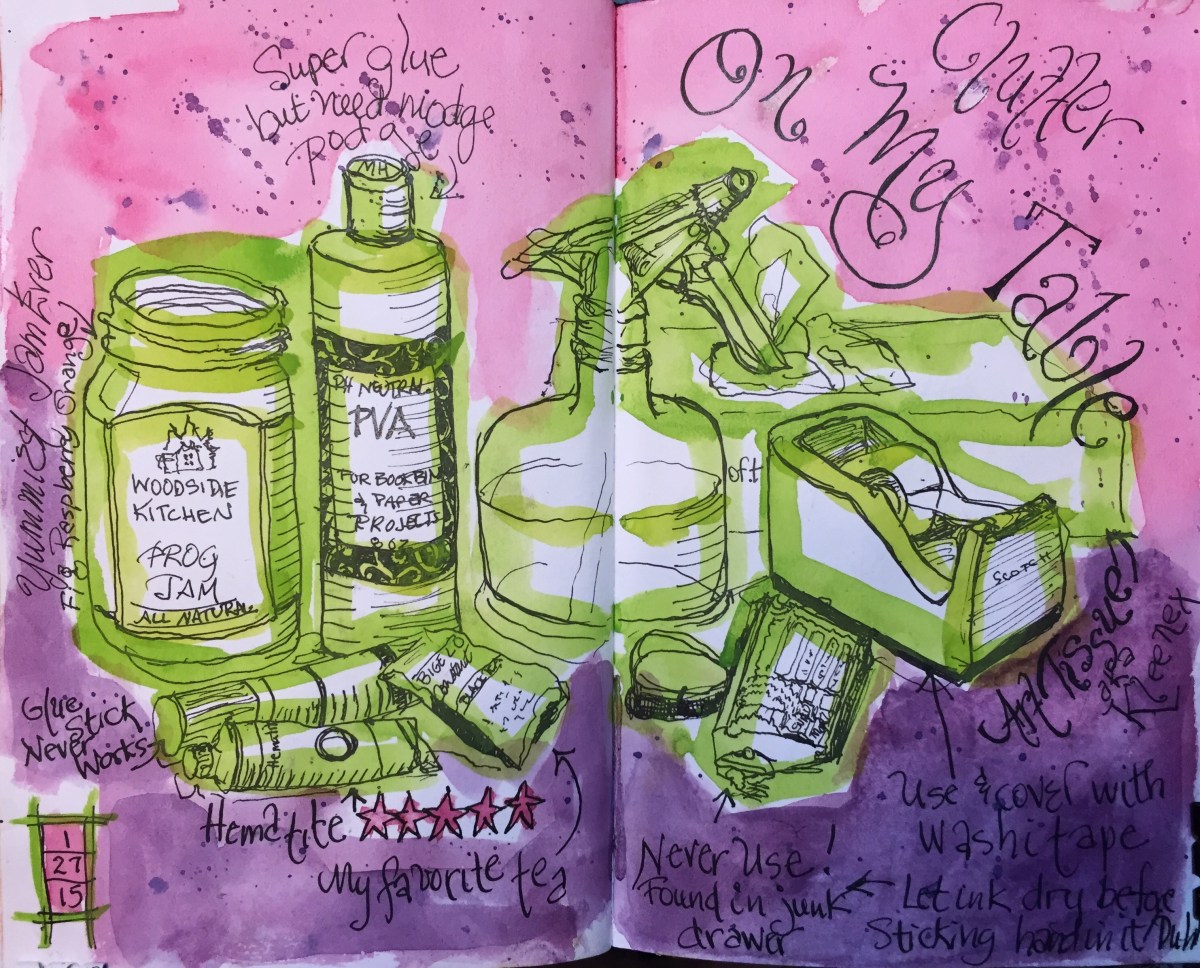 Super glue
but need modge
podge
MH
Yummiest Jam Ever
Fig Raspberry Orange
WOODSIDE
KITCHEN
FROG
JAM
ALL NATURAL
PH NEUTRAL
PVA
FOR BOOKBIN
& PAPER
PROJECTS
8 OZ
Glue
Stick
Never
Works
Hematite
Hematite
My favorite tea
1
27
15
On My
Clutter
Table
oft
SCOTCH
Art Tissue
aka
Kleenex
Use & cover with
Washi tape
Never Use!
Found in junk
drawer
Let ink dry before
Sticking hand in it! Duh